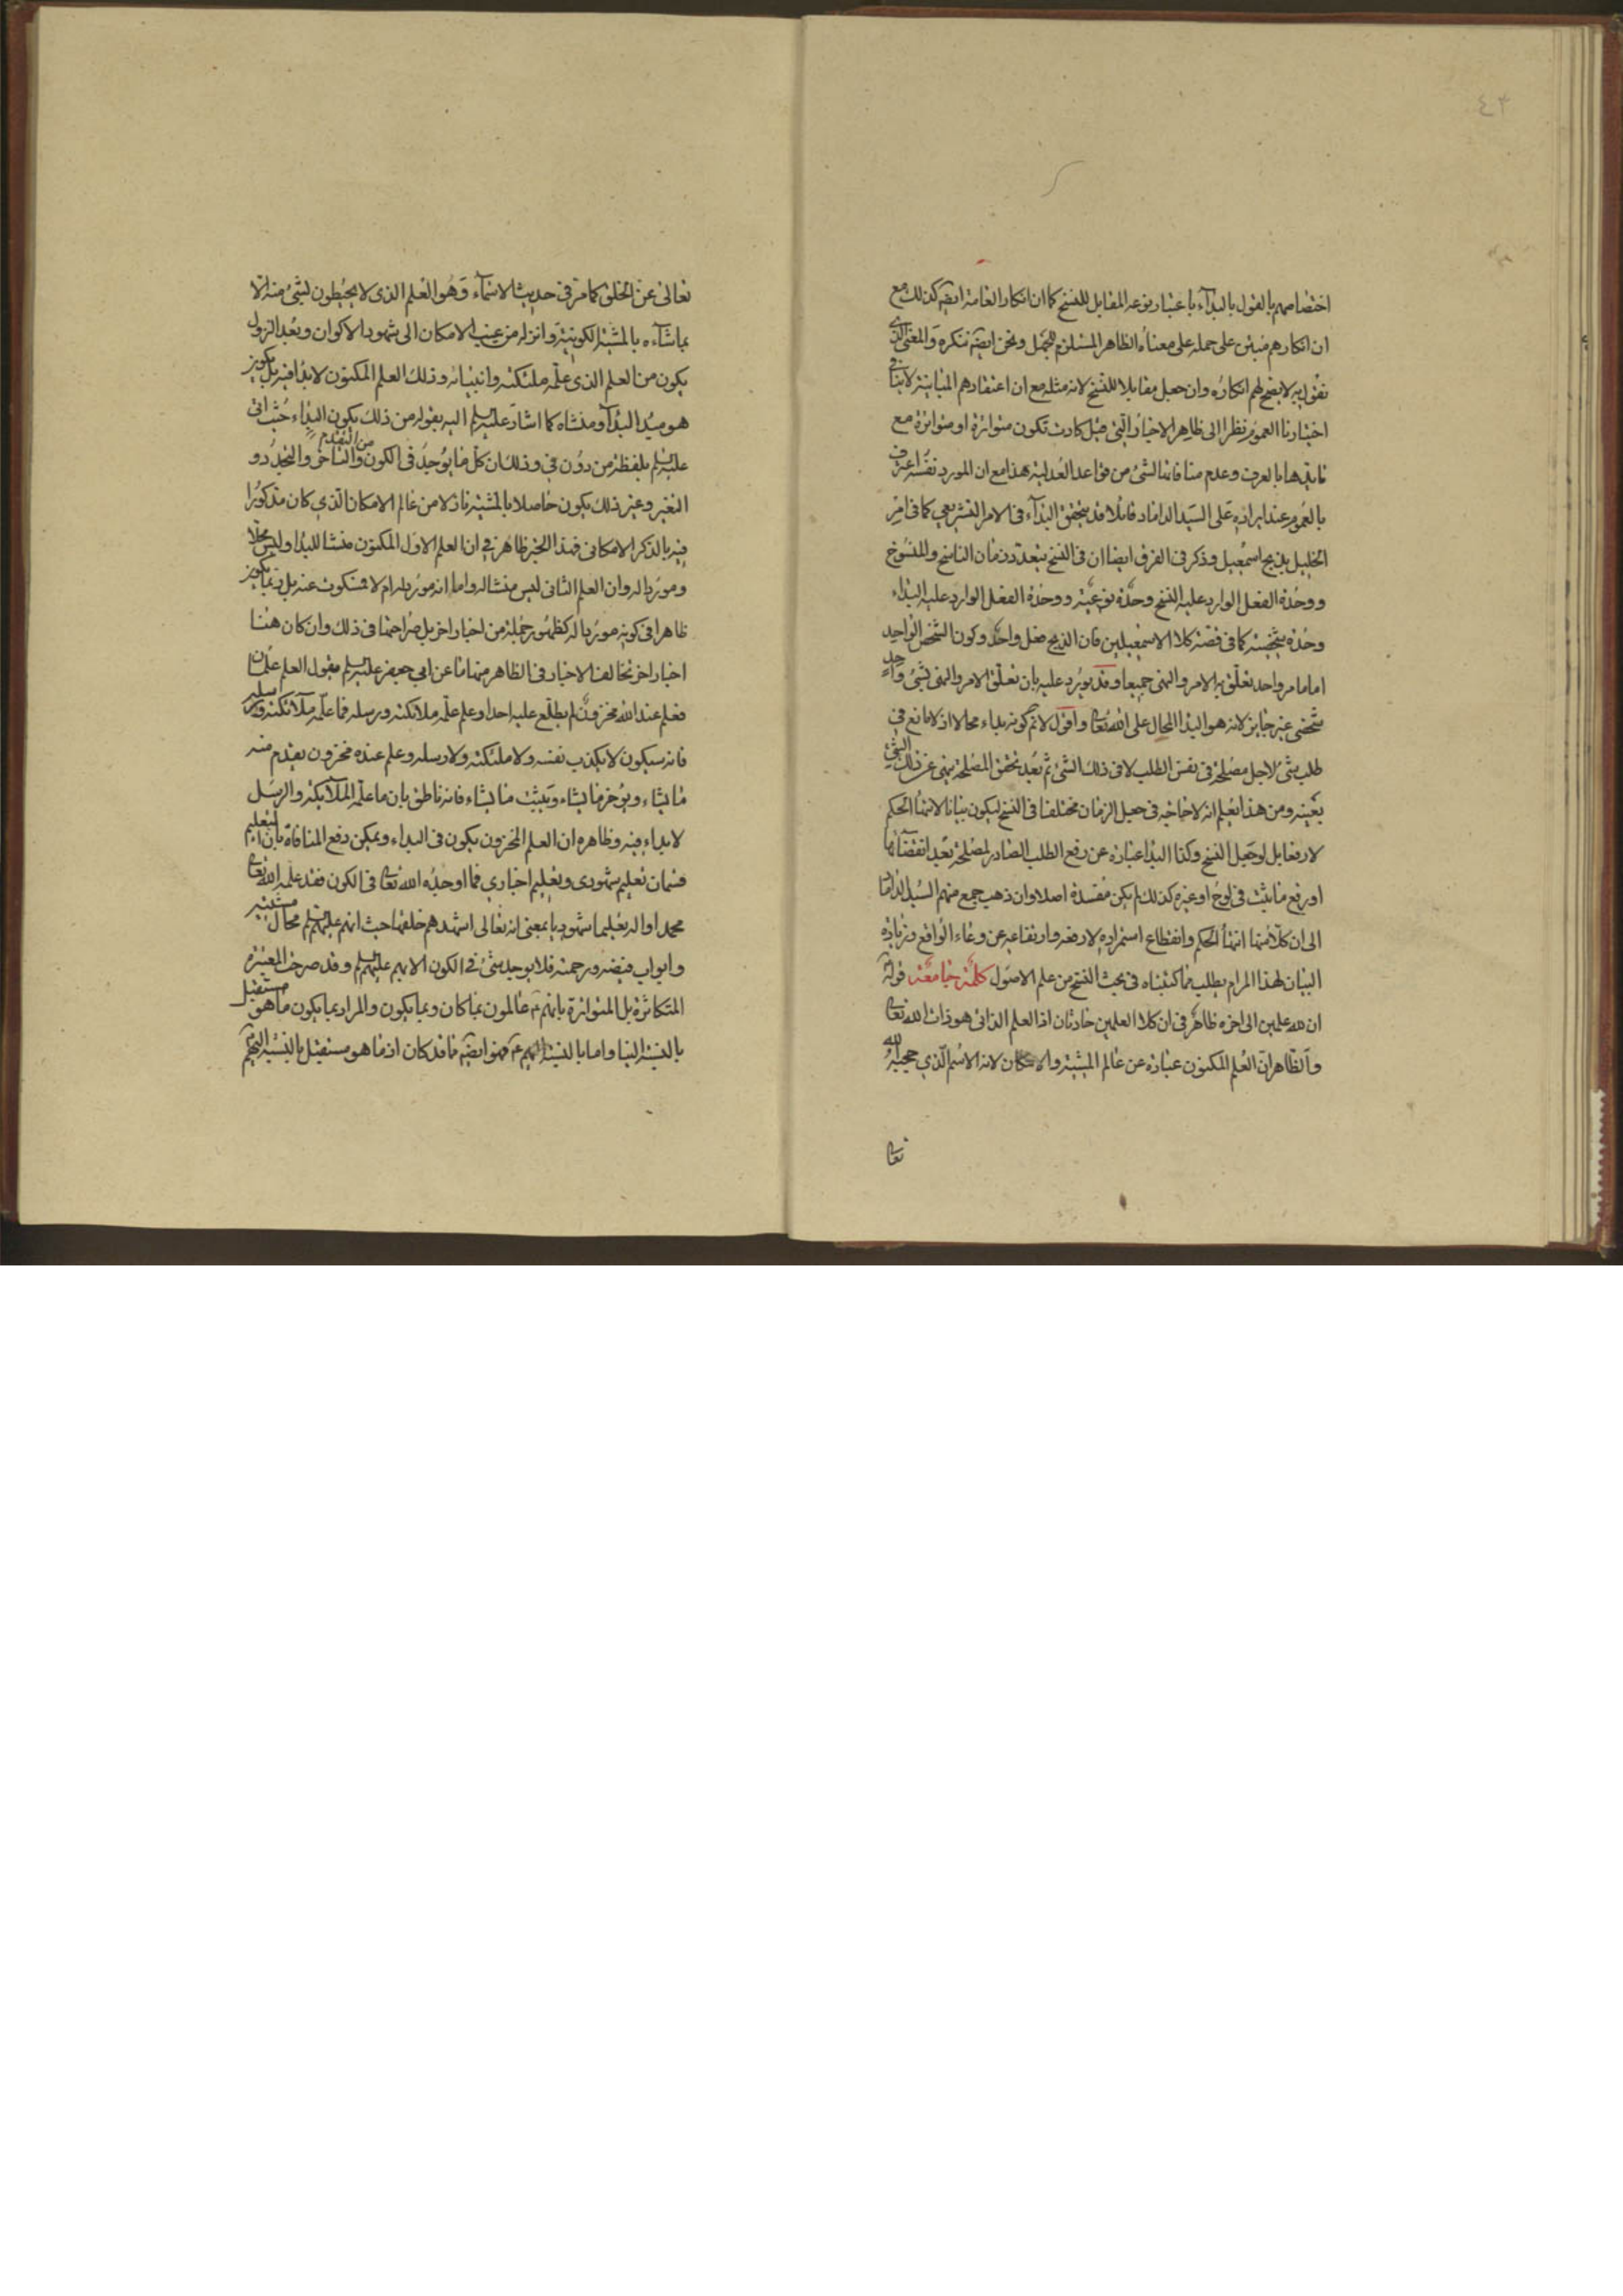 ٤٣
اختصاصهم بالقول بالبدآء باعتبار نوعه المقابل للنسخ كما ان انكار العامة ايضه كذلك مع
ان انكارهم مبتن على حمله على معناه الظاهر المستلزم للجهل ونحن ايضه ننكره والمعنى الذى
نقول به لا يصح لهم انكاره وان جعل مقابلا للنسخ لانه مثله مع ان اعتقادهم المباينة لا ينافى
اختيارنا العموم نظرا الى ظاهر الاخبار التى قيل كادت تكون متواترة او متواترة مع
تايدها بالعرف وعدم منافاتنا لشئ من قواعد العدلية هذا مع ان المورد نفسه اعترف
بالعموم عند ايراده على السيد الداماد قائلا قد يتحقق البدآء فى الامر التشريعى كما فى امر
الخليل بذبح اسمعيل وذكر فى الفرق ايضا ان فى النسخ يتعدد زمان الناسخ والمنسوخ
ووحدة الفعل الوارد عليه النسخ وحدة نوعية ووحدة الفعل الوارد عليه البداء
وحدة شخصية كما فى قصة كلا الاسمعيلين فان الذبح فعل واحد وكون الشخص الواحد
اماما امر واحد تعلق به الامر والنهى جميعا وقد يورد عليه بان تعلق الامر والنهى بشئ واحد
شخصى غير جايز لانه هو البدا المحال على الله تعا واقول لا ثم كونه بداء محالا اذ لا مانع فى
طلب شئ لاجل مصلحة فى نفس الطلب لا فى ذلك الشئ ثم بعد تحقق المصلحة ينهى عن ذلك الشئ
بعينه ومن هذا يعلم انه لا حاجة فى جعل الزمان مختلفا فى النسخ ليكون بيانا لانتهاء الحكم
لا رفعا بل لو جعل النسخ وكذا البدا عبارة عن رفع الطلب الصادر لمصلحة بعد انقضآئها
او رفع ما يثبت فى لوح او غيره كذلك لم يكن مفسدة اصلا وان ذهب جمع منهم السيد الداماد
الى ان كلا منهما انتهاء الحكم وانقطاع استمراره لا رفعه وارتفاعه عن وعاء الواقع وزيادة
البيان لهذا المرام يطلب مما كتبناه فى بحث النسخ من علم الاصول كلمة جامعة قوله
ان لله علمين الى اخره ظاهر فى ان كلا العلمين حادثان اذ العلم الذاتى هو ذات الله تعا
والظاهر ان العلم المكنون عبارة عن عالم المشية والامكان لانه الاسم الذى حجبه الله
تعا
تعالى عن الخلق كما مر فى حديث الاسمآء وهو العلم الذى لا يحيطون بشئ منه الا
بما شآءه بالمشية الكونية وانزله من غيب الامكان الى شهود الاكوان وبعد النزول
يكون من العلم الذى علمه ملئكته وانبيائه وذلك العلم المكنون لا بدا فيه بل يكون
هو مبدا البدآء ومنشاه كما اشار عليه السلم اليه بقوله من ذلك يكون البداء حيث اتى
عليه السلم بلفظة من دون فى وذلك ان كل ما يوجد فى الكون من التقدم والتاخر والتجدد و
التغير وغير ذلك يكون حاصلا بالمشية نازلا من عالم الامكان الذى كان مذكورا
فيه بالذكر الامكانى فهذا الخبر ظاهر فى ان العلم الاول المكنون منشا للبدا وليس محلا
وموردا له وان العلم الثانى ليس منشا له واما انه مورد له ام لا فسكوت عنه بل ربما يكون
ظاهرا فى كونه موردا له كظهور جملة من اخبار اخر بل صراحتها فى ذلك وان كان هنا
اخبار اخر تخالف الاخبار فى الظاهر منها ما عن ابى جعفر عليه السلم يقول العلم علمان
فعلم عند الله مخزون لم يطلع عليه احدا وعلم علمه ملائكته ورسله فما علمه ملآئكته ورسله
فانه سيكون لا يكذب نفسه ولا ملئكته ولا رسله وعلم عنده مخزون يقدم منه
ما يشاء ويؤخر ما يشاء ويثبت ما يشاء فانه ناطق بان ما علمه الملآئكة والرسل
لا بداء فيه وظاهره ان العلم المخزون يكون فى البداء ويمكن دفع المنافاة بان التعليم
قسمان تعليم شهودى وتعليم اخبارى فما اوجده الله تعا فى الكون فقد علمه الله تعا
محمدا واله تعليما شهوديا بمعنى انه تعالى اشهدهم خلقها حيث انهم عليهم السلم محال مشيته
وابواب فيضه ورحمته فلا يوجد شئ فى الكون الا بهم عليهم السلم وقد صرحت المعتبرة
المتكاثرة بل المتواترة بانهم ع عالمون بما كان وبما يكون والمراد بما يكون ما هو مستقبل
بالنسبة الينا واما بالنسبة اليهم ع فهو ايضه ما قد كان اذ ما هو مستقبل بالنسبة اليهم